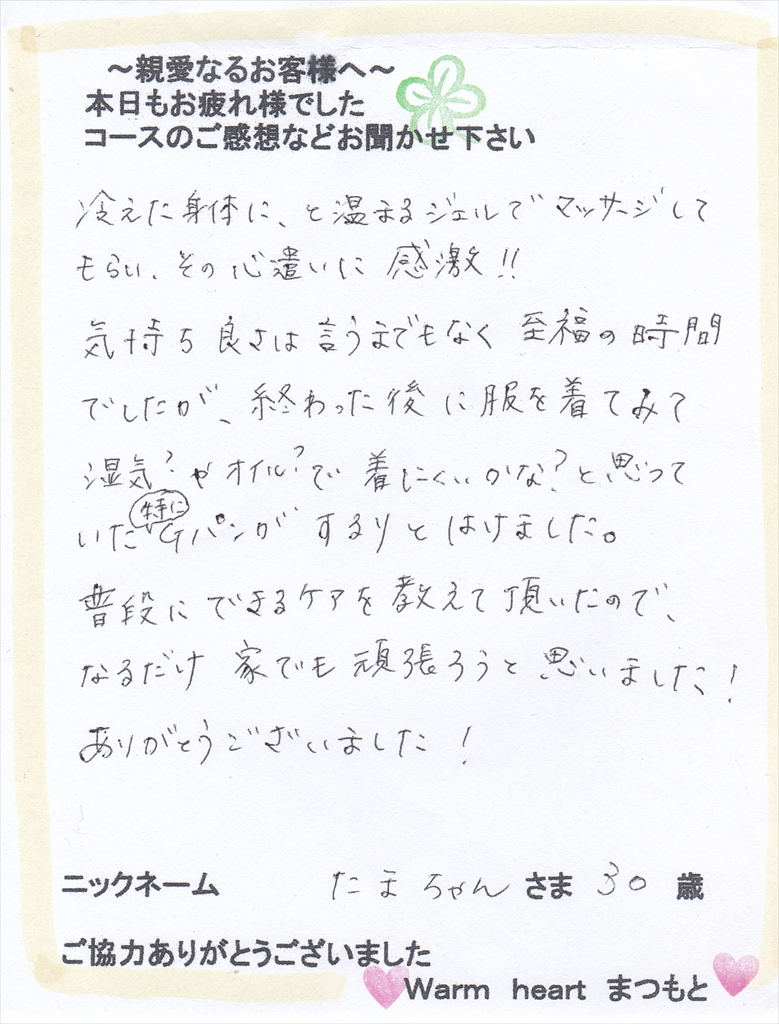 ~親愛なるお客様へ~
本日もお疲れ様でした
コースのご感想などお聞かせ下さい
冷えた身体に、と温まるジェルでマッサージして
もらい、その心遣いに感激!!
気持ち良さは言うまでもなく至福の時間
でしたが、終わった後に服を着てみて
湿気?やオイル?で着しにくいかな?と思って
いた特にGパンがするりとはけました。
普段にできるケアを教えて頂いたので、
なるだけ家でも頑張ろうと思いました!
ありがとうございました!
ニックネーム たまちゃん さま 30 歳
ご協力ありがとうございました
Warm heart まつもと